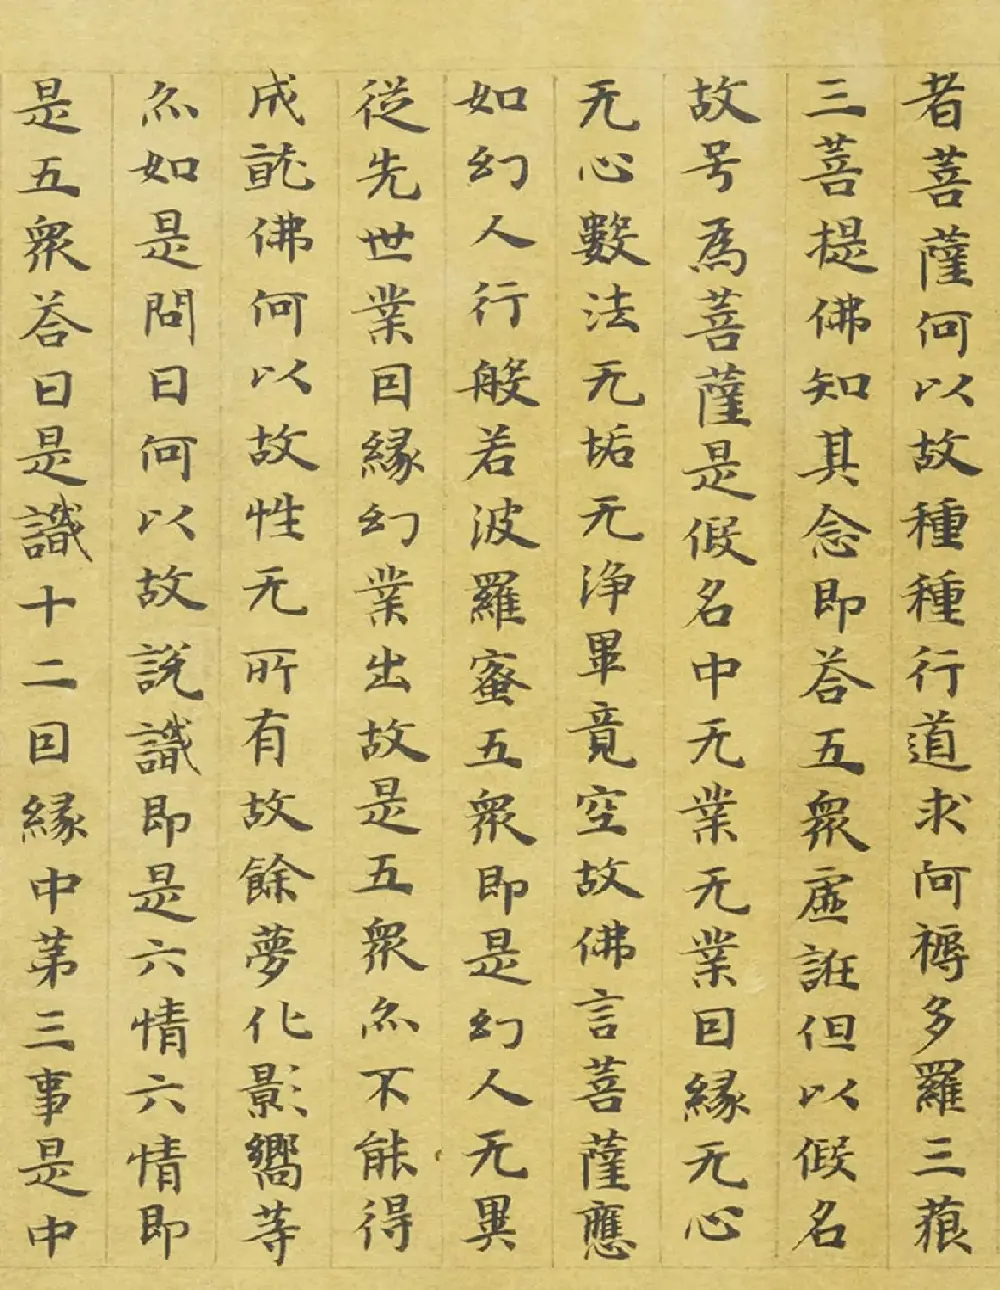 者菩薩何以故種種行道求阿耨多羅三藐
三菩提佛知其念即荅五眾虛誑但以假名
故号為菩薩是假名中无業无業因緣无心
无心數法无垢无淨畢竟空故佛言菩薩應
如幻人行般若波羅蜜五眾即是幻人无異
從先世業因緣幻業出故是五眾亦不能得
成就佛何以故性无所有故餘夢化影嚮等
亦如是問曰何以故說識即是六情六情即
是五眾荅曰是識十二因緣中第三事是中